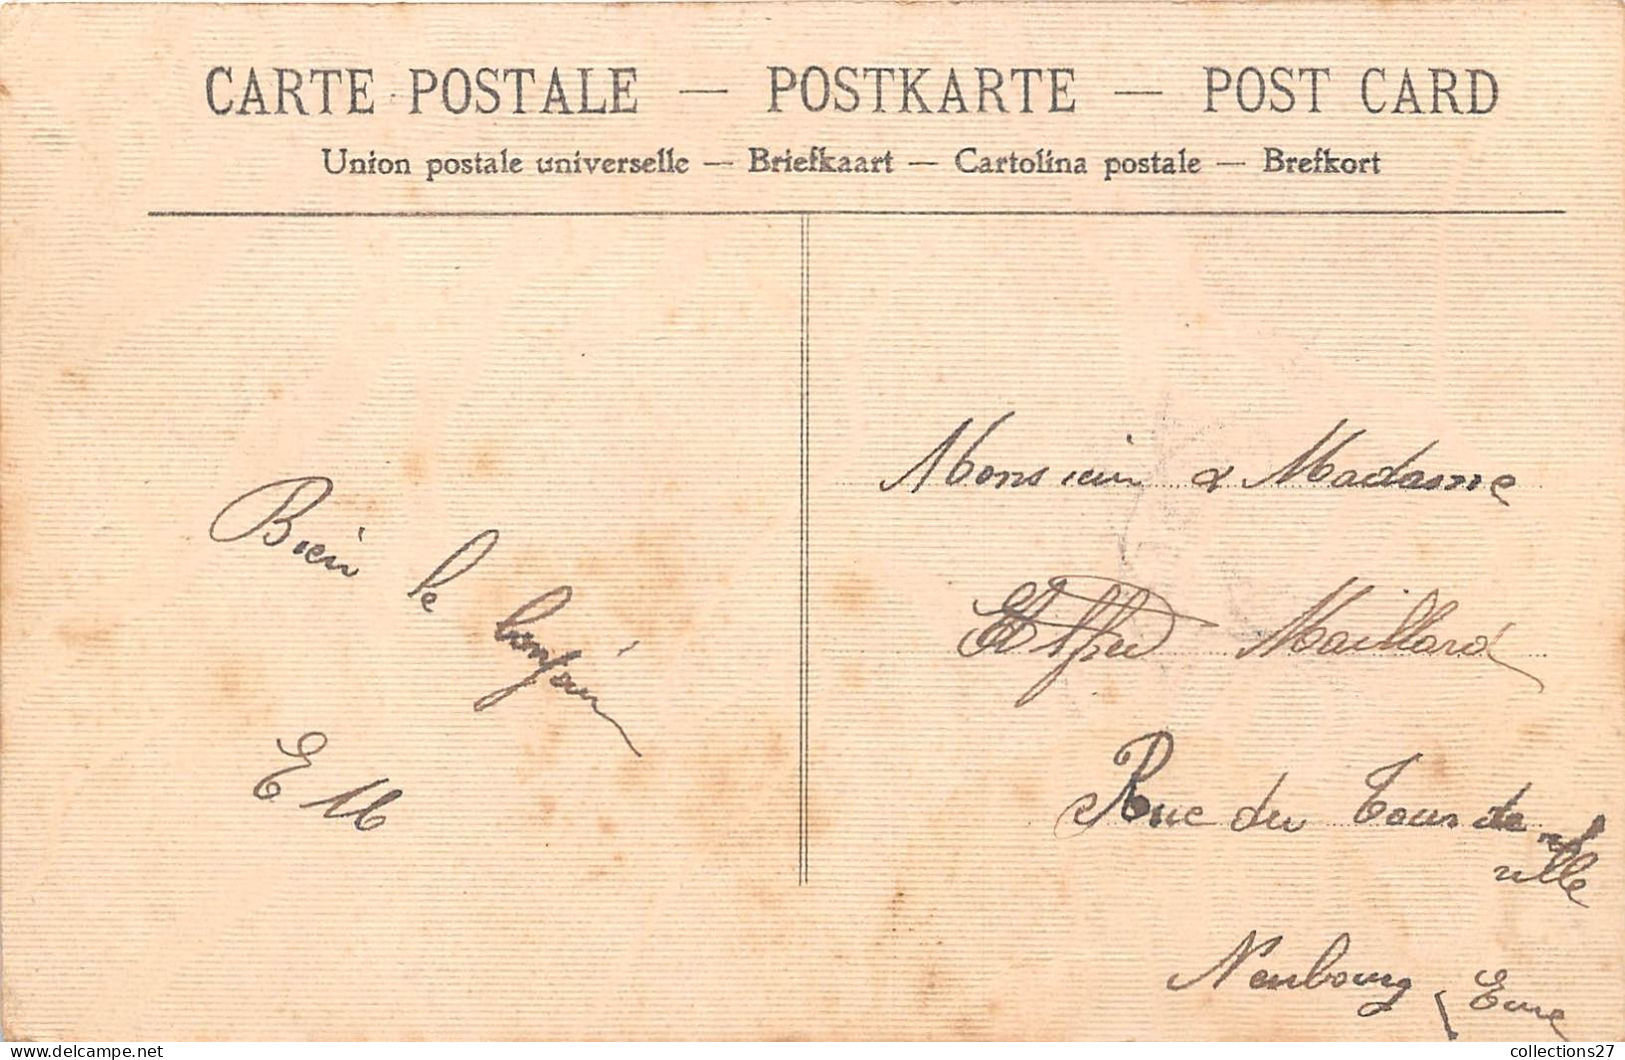 CARTE POSTALE — POSTKARTE — POST CARD
Union postale universelle — Briefkaart — Cartolina postale — Brefkort
Bien
le
bonjour
E M
Monsieur & Madame
Maillard
Rue du Tour de
ville
Neubourg
Eure
collections27